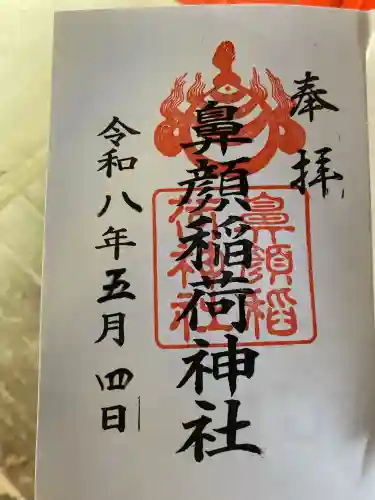 奉拝
鼻顔稲荷神社
鼻顔稲
荷神社
令和八年五月四日